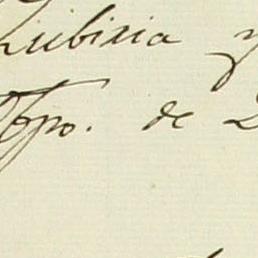 Lubiria y
Obpo. de